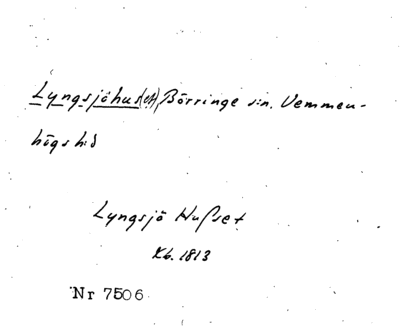 Lyngsjöhus(et), Börringe s:n, Vemmen-
högs h:d
Lyngsjö Husset
Kb. 1813
Nr 7506